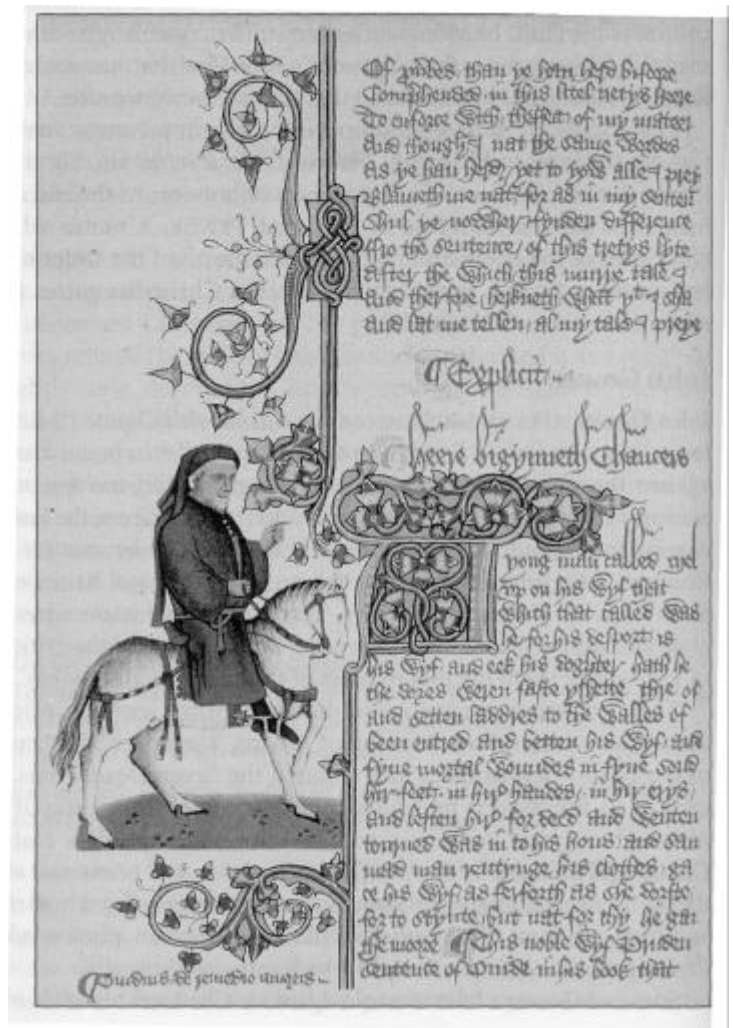 Of prouerbes than ye han herd bifore
Comprehended in this litel tretys heere
To enforce with theffect of my mateere
And though I nat the same wordes
As ye han herd / yet to yow alle I prey
Blameth me nat / for as in my senten
Shul ye nowher / fynden difference
ffro the sentence / of this tretys lyte
After the which this murye tale I
And therfore herkneth what yt I sha
And lat me tellen al my tale I preye
¶ Explicit
¶ Heere bigynneth Chaucers
yong man called Mel
vp on his wyf that
which that called was
he for his desport is
his wyf and eek his doghter hath he
the dores weren faste yshette thre of
and setten laddres to the walles of
been entred and betten his wyf and
fyue mortal woundes in fyue sond
hir feet in hir handes in hir erys
and leften hir for deed and wenten
torned was in to his hous and sau
mad man rentynge his clothes ga
ce his wyf as ferforth as she dorste
for to stynte but nat for thy he gan
the moore ¶ This noble wyf Pruden
sentence of Ouide in his book that
¶ Ouidius de remedio amoris